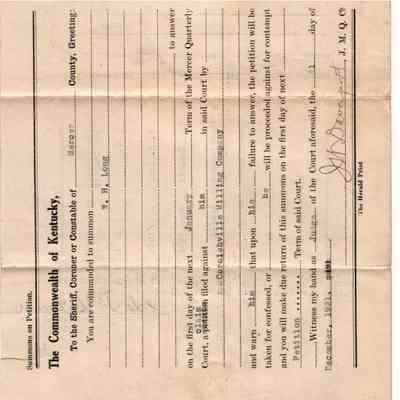 Summons on Petition.
The Commonwealth of Kentucky,
To the Sheriff, Coroner or Constable of Mercer County, Greeting:
You are commanded to summon
T. H. Long
to answer
on the first day of the next January Term of the Mercer Quarterly
claim
Court, a petition filed against him in said Court by
Cornishville Milling Company
and warn him that upon his failure to answer, the petition will be
taken for confessed, or he will be proceeded against for contempt
and you will make due return of this summons on the first day of next
Petition Term of said Court.
Witness my hand as Judge of the Court aforesaid, the day of
December, 1921.
J. M. Q. Co
The Herald Print